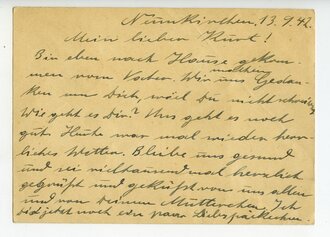 Neunkirchen, 13.9.42.
Mein lieber Kurt!
Bin eben nach Hause gekom-
men vom Vater. Wir machen uns Gedan-
ken um Dich, weil Du nicht schreibst.
Wie geht es Dir? Uns geht es noch
gut. Heute war mal wieder herr-
liches Wetter. Bleibe uns gesund
und sei vieltausendmal herzlich
gegrüßt und geküßt von uns allen
und von Deinem Mutterchen. Ich
jetzt noch ein paar